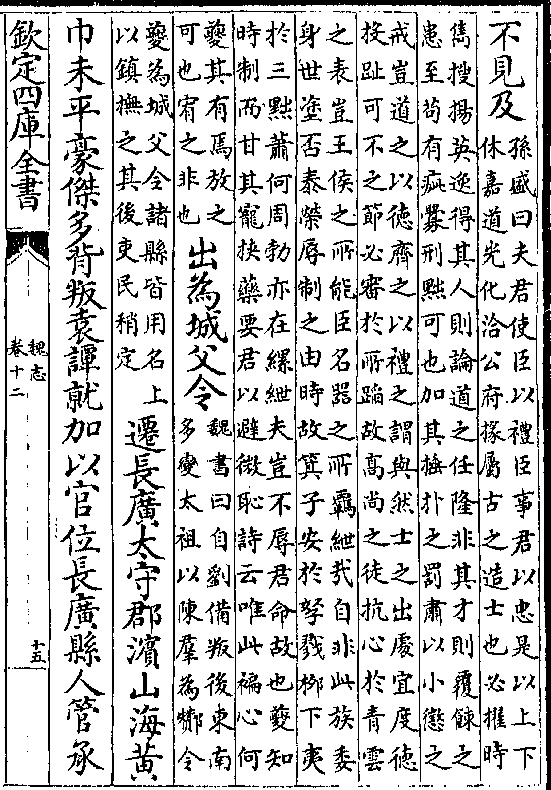 不見及
孫盛曰夫君使臣以禮臣事君以忠是以上下
休嘉道光化洽公府掾屬古之造士也必擢時
雋搜揚英逸得其人則論道之任隆非其才則覆餗之
患至苟有疵釁刑黜可也加其捶扑之罰肅以小懲之
戒豈道之以德齊之以禮之謂與然士之出處宜度德
投趾可不之節必審於所蹈故高尚之徒抗心於青雲
之表豈王侯之所能臣名器之所羈紲哉自非此族委
身世塗否泰榮辱制之由時故箕子安於孥戮栁下夷
於三黜蕭何周勃亦在縲紲夫豈不辱君命故也夔知
時制而甘其寵挾藥要君以避微恥詩云唯此褊心何
夔其有焉放之
可也宥之非也
出為城父令
魏書曰自劉備叛後東南
多變太祖以陳羣為酇令
夔為城父令諸縣皆用名上
以鎮撫之其後吏民稍定
遷長廣太守郡濱山海黃
巾未平豪傑多背叛袁譚就加以官位長廣縣人管承
欽定四庫全書
魏志
卷十二
十五